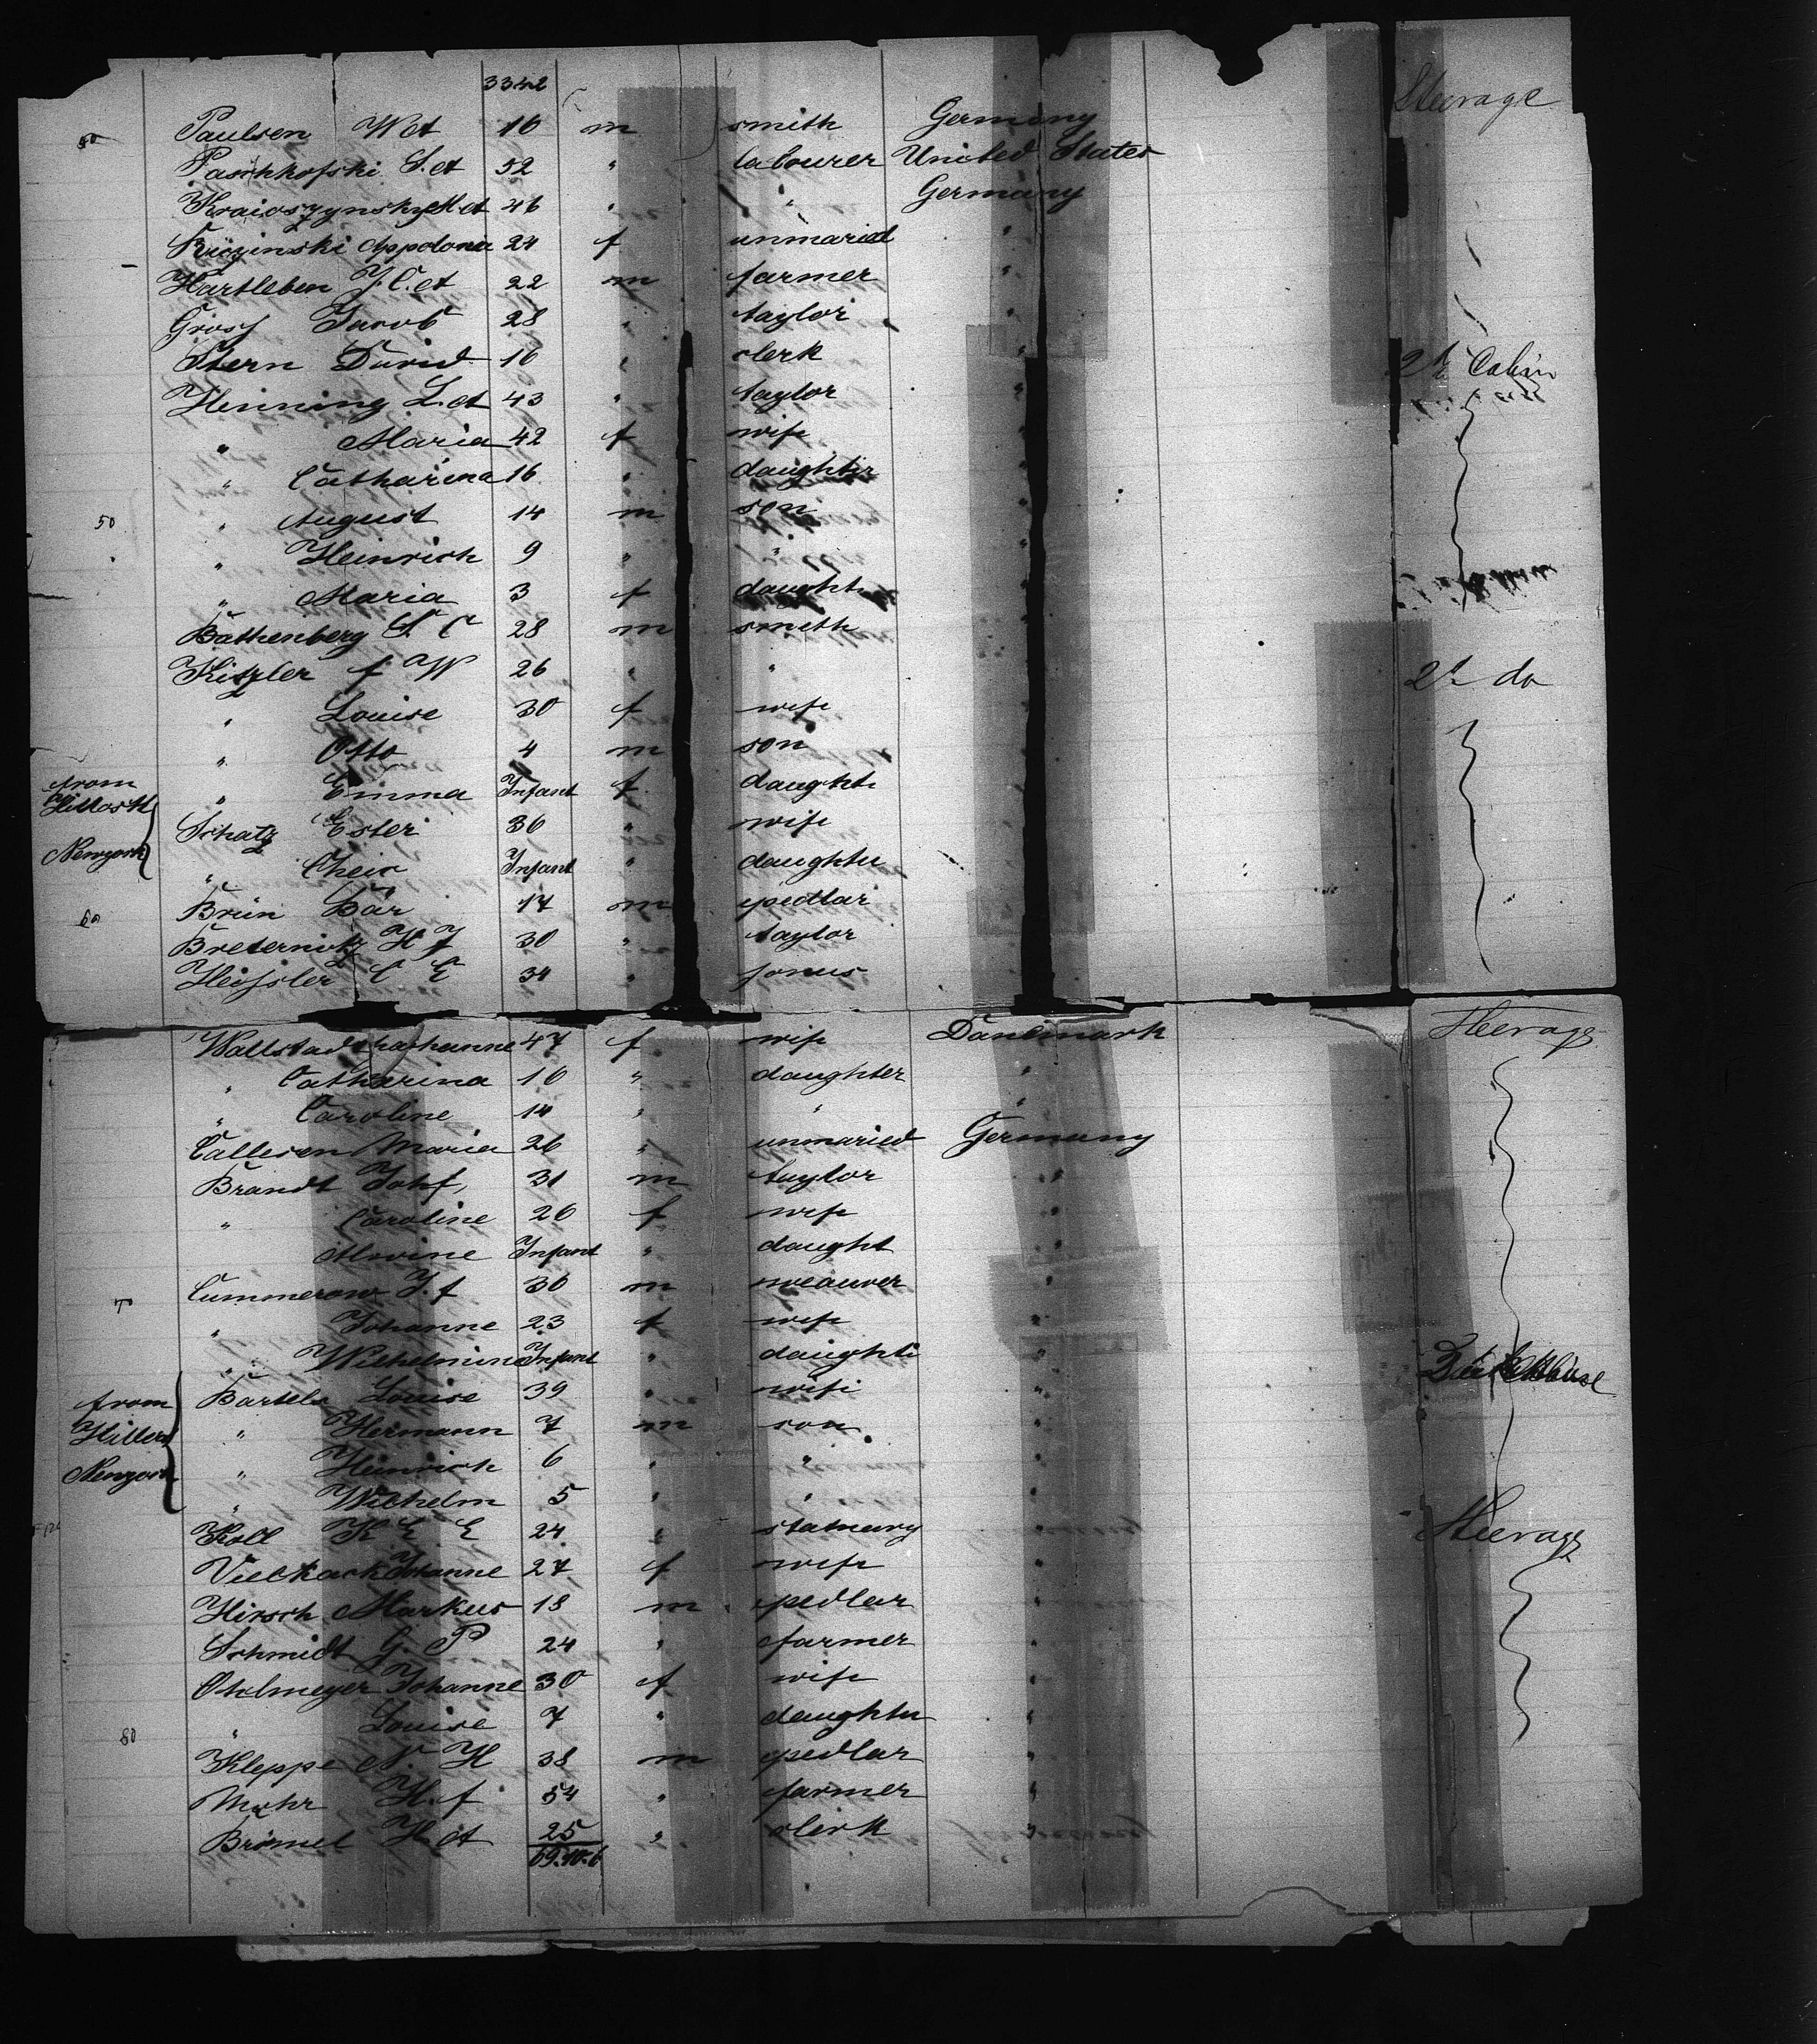 3342
40 Paulsen W A 16 m smith Germany Steerage
Paschkofski S. A 52 " labourer United States
Kraioszynsky M A 46 " " Germany
Kuczinski Appolonia 24 f unmaried "
Hartleben J. C. A 22 m farmer "
Gross Jacob 28 " taylor "
Stern David 16 " clerk " 2d Cabin
Henning L. A 43 " taylor "
" Maria 42 f wife "
" Catharina 16 " daughter "
50 " August 14 m son "
" Heinrich 9 " " "
" Maria 3 f daught
Bathenberg S. C 28 m smith
Kiszler f W 26 " " 2d do
" Louise 30 f wife
" Otto 4 m son
from " Emma Infant f daught
Schatz Ester 36 " wife
Newyork " Cheie Infant " daughter
60 Brün Bär 17 m pedlar
Breternitz H J 30 " taylor
Heissler C E 34 "
Wallstadt 47 f wife Danemark Steerage
" Catharina 10 " daughter "
" Caroline 14 " " "
Callesen Maria 26 " unmaried Germany
Brandt Johs, 31 m taylor "
" Caroline 26 f wife "
Alwine Infant " daught "
70 Cummerow J. f 36 m weauver "
" Johanne 23 f wife "
" Wilhelmine Infant " daught "
from Bartels Louise 39 " wife "
Hillers " Hermann 7 m son "
Newyork " Heinrich 6 " " "
" Wilhelm 5 " " "
Koll K E E 24 " statuary Steerage
Johanne 27 f wife "
Hirsch Markus 18 m pedlar "
Schmidt G. P 24 " farmer "
Ohlmeyer Johanne 30 f wife "
80 " Louise 7 " daughter "
Kleppe N H 38 m pedlar "
Mohr H. f 54 " farmer "
Brömel H. A 25 " clerk "
69.10.6